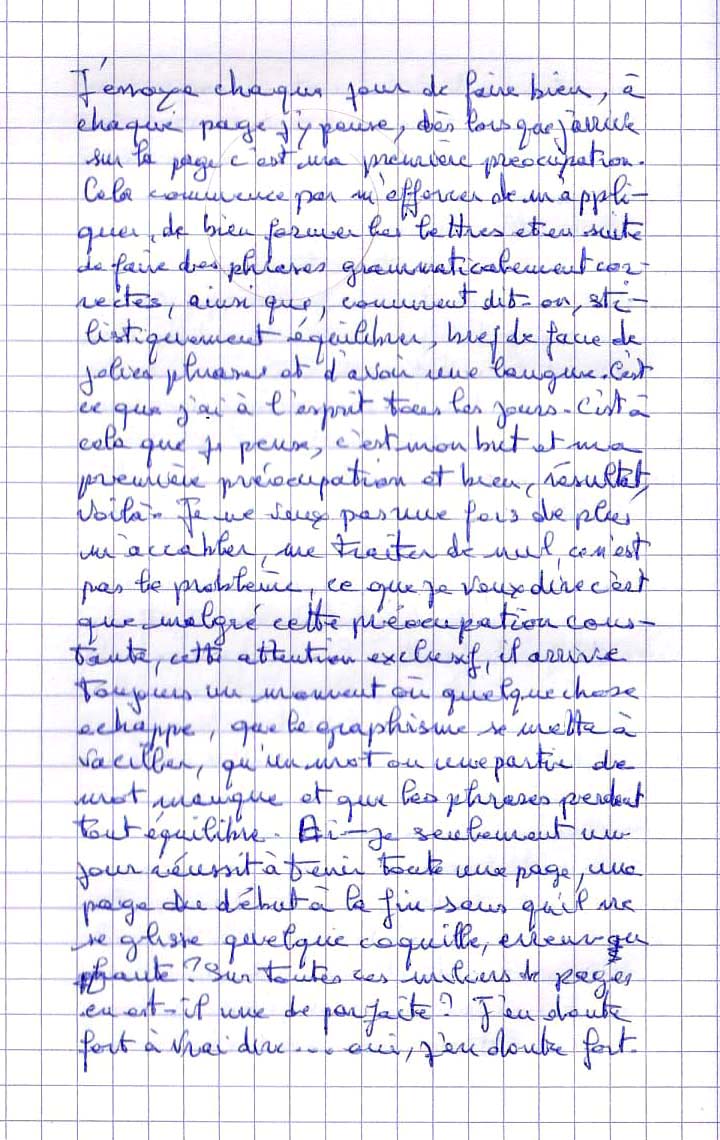 J'essaye chaque jour de faire bien, à
chaque page j'y pense, dès lors que j'arrive
sur la page c'est ma première préocupation.
Cela commence par m'efforcer de m'appli-
quer, de bien former les lettres et en suite
de faire des phrases grammaticalement cor-
rectes, ainsi que, comment dit-on, sti-
listiquement équilibrer, bref de faire de
jolies phrases et d'avoir une langue. C'est
ce que j'ai à l'esprit tous les jours. C'est à
cela que je pense, c'est mon but et ma
première préocupation et bien, résultat,
voilà. Je ne veux pas une fois de plus
m'accabler, me traiter de nul, ce n'est
pas le problème, ce que je veux dire c'est
que malgré cette préocupation cons-
tante, cette attention exclusif, il arrive
toujours un moment où quelque chose
echappe, que le graphisme se mette à
vaciller, qu'un mot ou une partie de
mot manque et que les phrases perdent
tout équilibre. Ai-je seulement un
jour réussit à tenir toute une page, une
page du début à la fin sans qu'il ne
se glisse quelque coquille, erreur ou
faute? Sur toutes ces milliers de pages
en est-il une de parfaite? J'en doute
fort à vrai dire... oui, j'en doute fort.